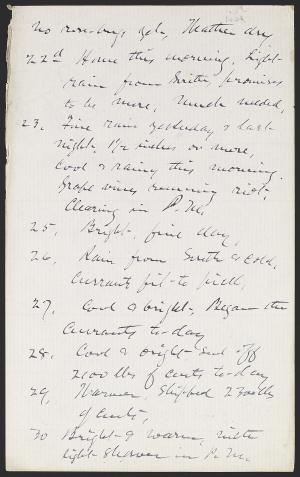 no rose-bugs yet, Weather dry
22d Home this morning. Light
rain from South, promises
to be more, Much needed,
23. Fine rain yesterday & last
night. 1½ inches or more,
Cool & rainy this morning.
Grape vines running riot.
Clearing in P.M.
25. Bright, fine day,
26. Rain from South & Cold,
Currants fit to pick,
27. Cool & bright. Began the
Currants to-day
28. Cool & bright. Sent off
2100 lbs of cunts to-day
29, Warmer, Shipped 2300 lbs
of cunts,
30 Bright & warm, with
light shower in P.M.